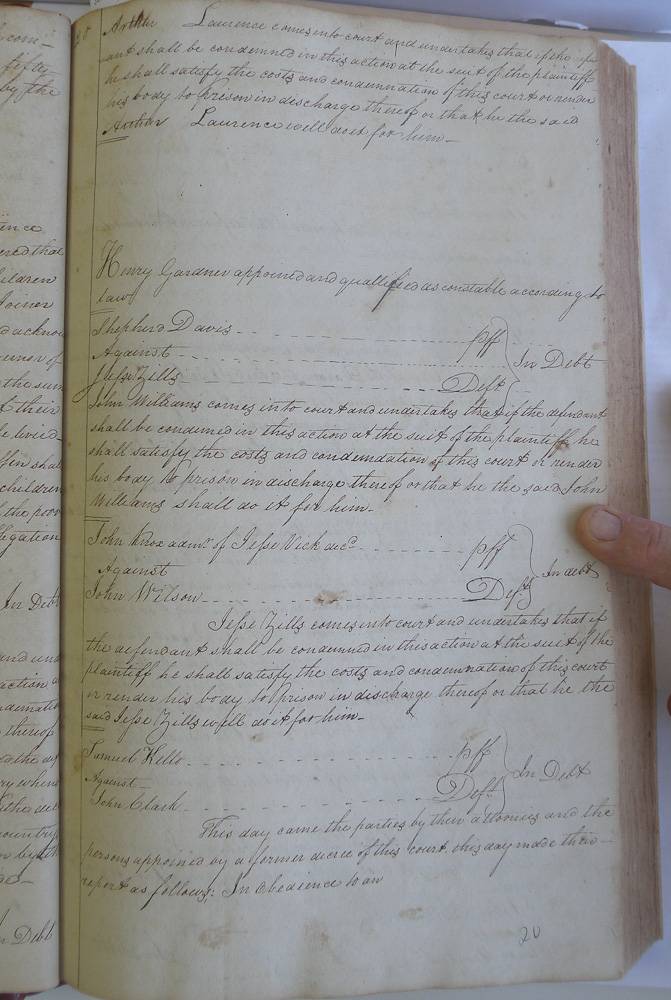 com-
by the
Arthur Laurence comes into court and undertakes that if the
ant shall be condemned in this action at the suit of the plaintiff
he shall satisfy the costs and condemnation of this court or render
his body to prison in discharge thereof or that he the said
Arthur Laurence will do it for him—
Henry Gardner appoined and quallified as constable according to
law
Shepherd Davis pff
Against In Debt
Jesse Zills Deft
John Williams comes into court and undertakes that if the defendant
shall be condemned in this action at the suit of the plaintiff he
shall satisfy the costs and condemdation of this court or render
his body to prison in discharge thereof or that he the said John
Williams shall do it for him.
John Knox admr of Jesse Vick decd pff
Against In debt
John Wilson Deft
Jesse Zills comes into court and undertakes that if
the defendant shall be condemned in this action at the suit of the
plaintiff he shall satisfy the costs and condemnation of this court
or render his body to prison in discharge thereof or that he the
said Jesse Zills will do it for him—
Samuel Kello pff
Against In Debt
John Clark Deft
This day came the parties by their attornies and the
persons appoined by a former decree of this court this day made their
report as follows: In Obedience to an
20
ered that
children
acknow
of
the sum
their
levied
shall
children
the poor
In Debt
and und
action
thereof
where
country
by the
In Debt